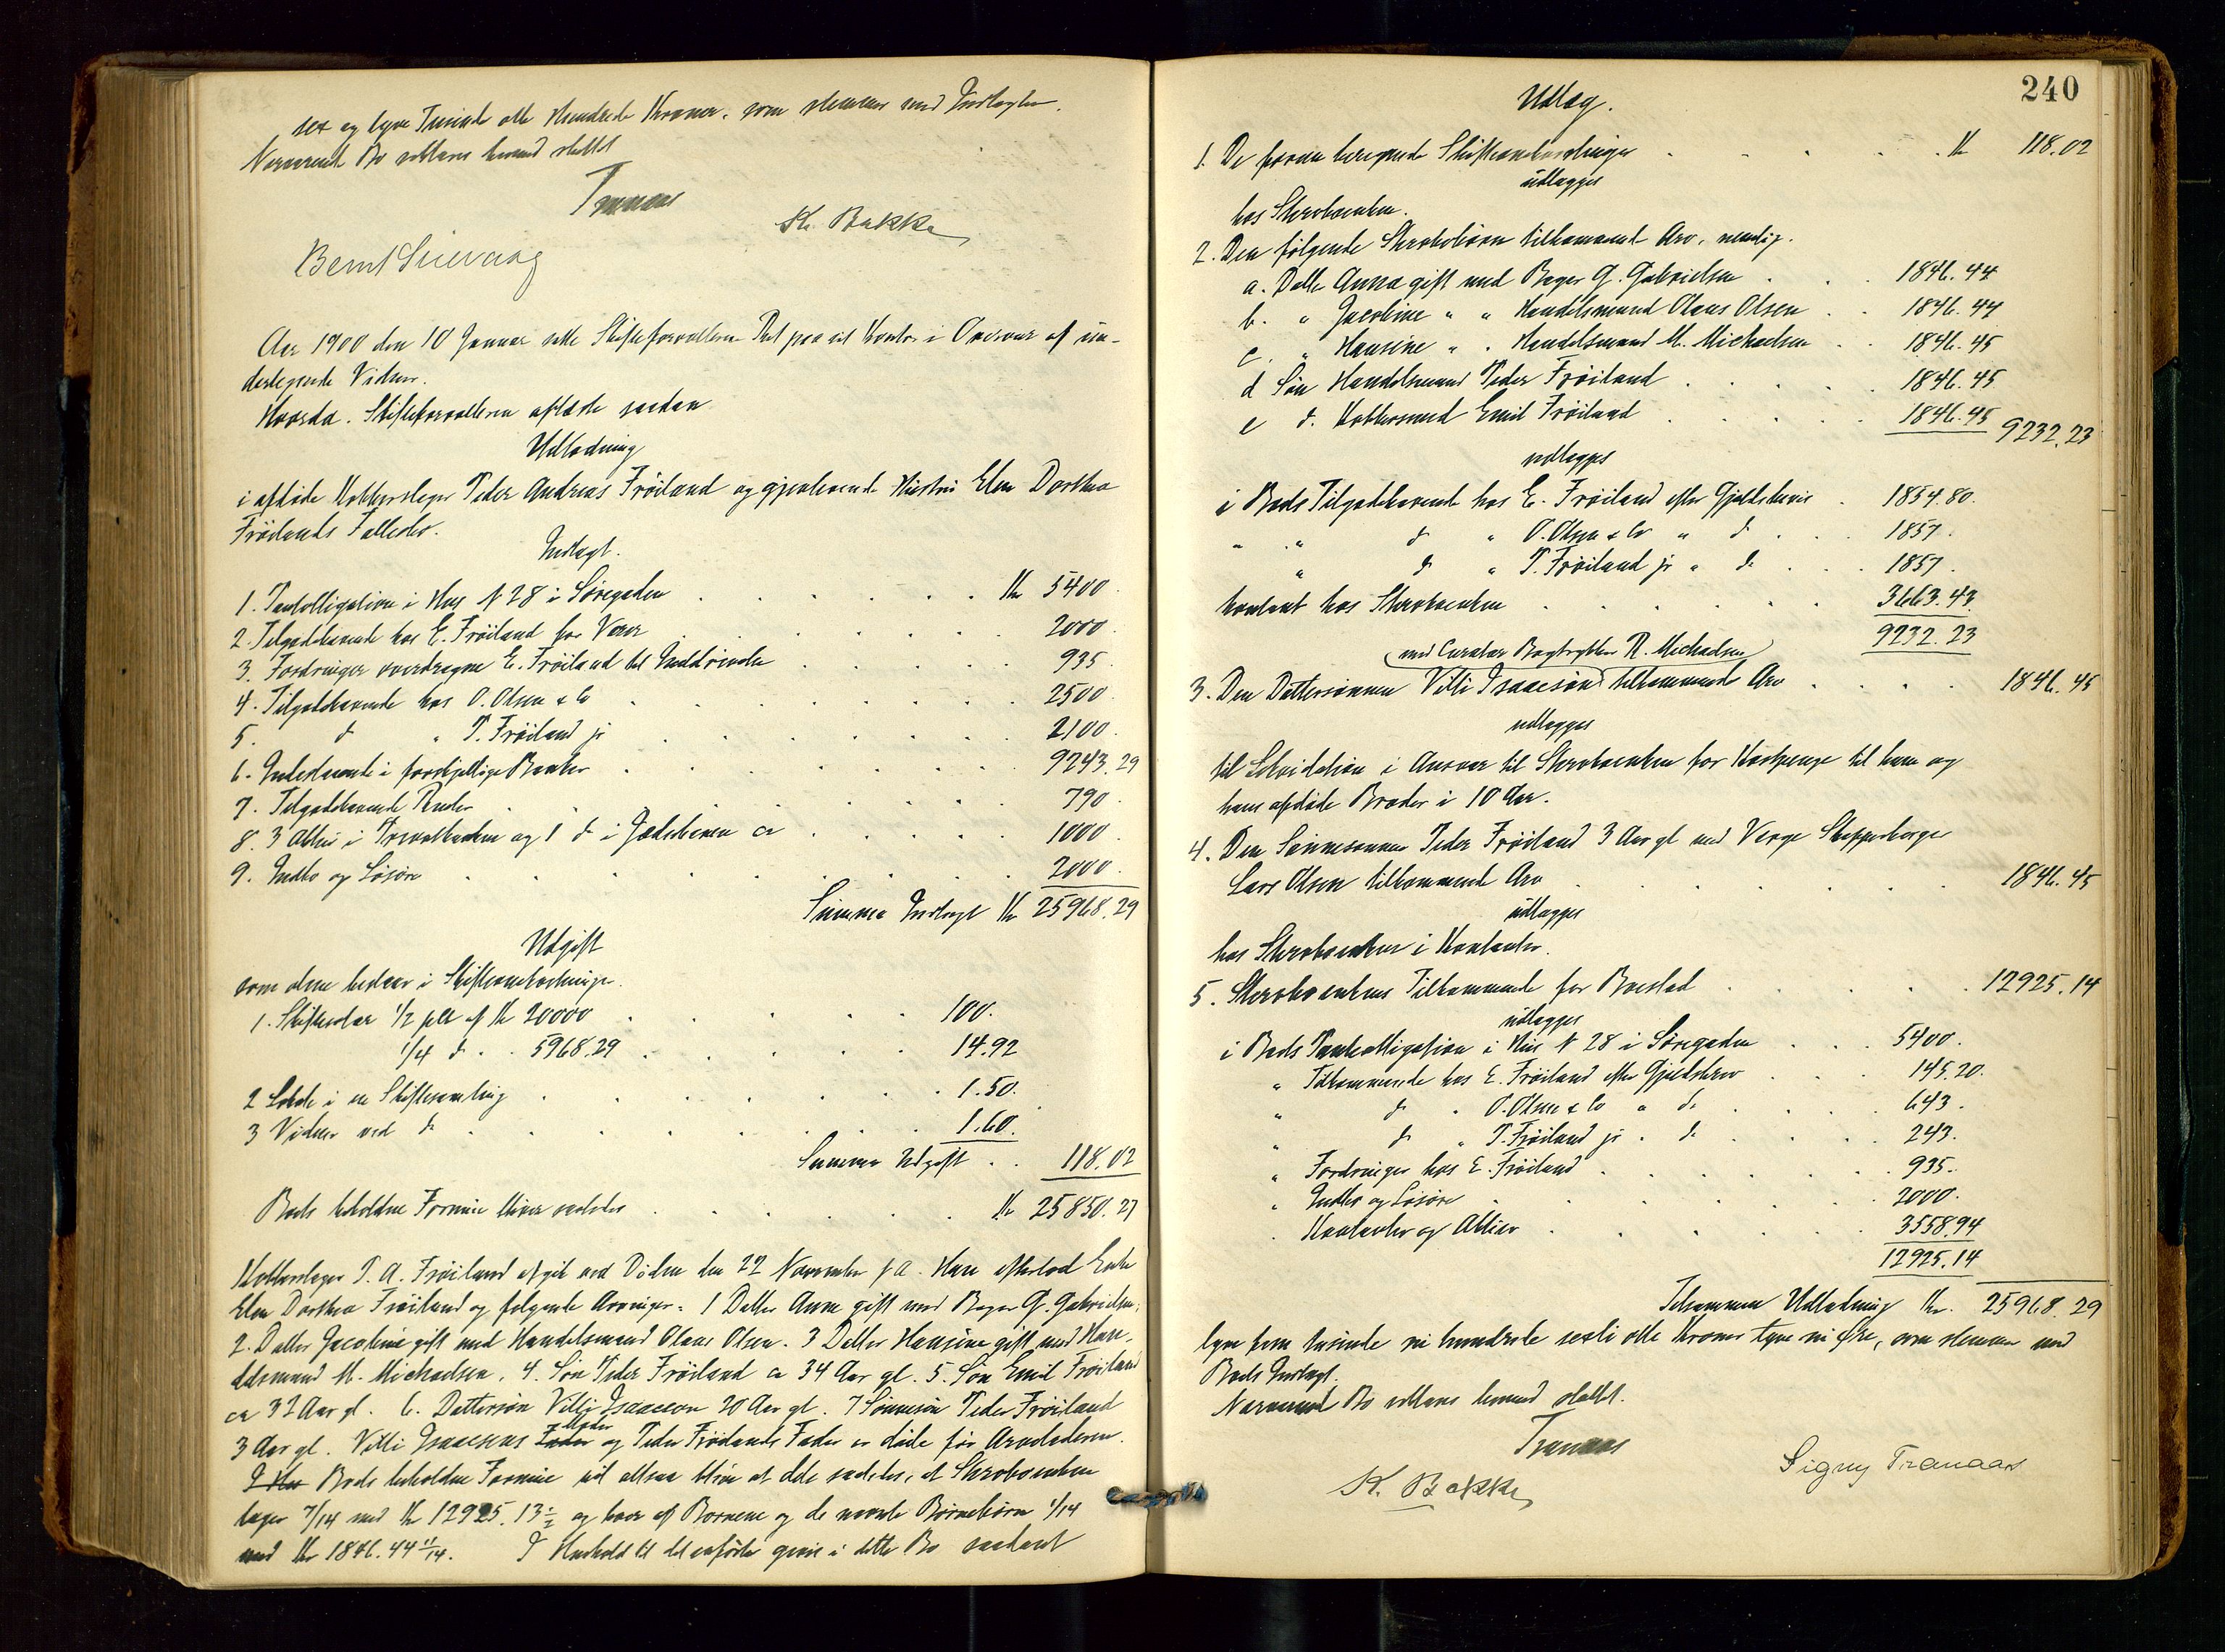 sex og tyve Tusinde otte Hundrede Kroner, som stemmer med Indtægten.
Nærværende Bo erklæres hermed sluttet
Tranaas
K. Bakke
Bernt Sirevaag
Aar 1900 den 10 Januar satte Skifteforvalteren Ret paa sit Kontor i Overvær af un-
dertegnede Vidner.
Hvorda. Skifteforvalteren afsluttede saadan
Udlodning
i afdøde Kobberslager Peder Andreas Frøiland og gjenlevende Hustru Elen Dorthea
Frøilands Fællesbo.
Indtægt.
1. Panteobligation i Hus N 28 i Søregaden Kr 5400.
2. Tilgodehavende hos E. Frøiland for Varer 2000.
3. Fordringer overdragne E. Frøiland til Inddrivelse 935.
4. Tilgodehavende hos O. Olsen & Co 2500.
5. do " P. Frøiland jr 2100.
6. Indestaaende i forskjellige Banker 9243.29
7. Tilgodehavende Renter 790.
8. 3 Aktier i Privatbanken og 1 do i Jæderbanen ca 1000.
9. Indbo og Løsøre 2000.
Summa Indtægt Kr 25968.29
Udgift
som alene bestaar i Skifteomkostninger.
1. Skiftesalær 1/2 pct af Kr 20000 100.
1/4 do . . 5968.29 14.92
2 Lokale i en Skiftesamling 1.50.
3 Vidner ved do 1.60.
Summa Udgift . . 118.02
Boets beholdne Formue bliver saaledes Kr 25850.27
Kobberslager P. A. Frøiland afgik ved Døden den 22 November f A. Han efterlod Enke
Elen Dorthea Frøiland og følgende Arvinger: 1 Datter Anna gift med Bager G. Gabrielsen,
2. Datter Jacobine gift med Handelsmand Olaus Olsen. 3 Datter Hansine gift med Han-
delsmand M. Michaelsen, 4. Søn Peder Frøiland ca 34 Aar gl. 5. Søn Emil Frøiland
ca 32 Aar gl. 6. Dattersøn Villi Isaacson 20 Aar gl. 7 Sønnesøn Peder Frøiland
3 Aar gl. Villi Isaacsons Moder og Peder Frøilands Fader er døde før Arveladeren.
Boets beholdne Formue vil altsaa blive at dele saaledes, at Skrøboenken
tager 7/14 med Kr 12925.13 1/2 og hver af Børnene og de nævnte Børnebørn 1/14
med Kr 1846.44 11/14. I Henhold til det anførte gives i dette Bo saadant
240
Udlæg.
1. De foran beregnede Skifteomkostninger Kr 118.02
udlægges
hos Skrøboenken.
2. Den følgende Skrøbobørn tilkommende Arv, nemlig.
a. Datter Anna gift med Bager G. Gabrielsen 1846.44
b. " Jacobine " " Handelsmand Olaus Olsen 1846.44
c. " Hansine " " Handelsmand M. Michaelsen 1846.45
d Søn Handelsmand Peder Frøiland 1846.45
e do. Kobbersmed Emil Frøiland 1846.45 9232.23
udlægges
i Boets Tilgodehavende hos E. Frøiland efter Gjældsbevis 1854.80.
" " do " O. Olsen & Co " do 1857.
" do " P. Frøiland jr " do 1857.
kontant hos Skrøboenken 3663.43
9232.23
(med Curator Bogtrykker R. Michaelsen)
3. Den Dattersønnen Villi Isaacson tilkommende Arv 1846.45
udlægges
til Likvidation i Ansvar til Skrøboenken for Kostpenge til ham og
hans afdøde Broder i 10 Aar.
4. Den Sønnesønnen Peder Frøiland 3 Aar gl med Verge Skipsbygger
Lars Olsen tilkommende Arv 1846.45
udlægges
hos Skrøboenken i Kontanter.
5. Skrøboenkens Tilkommende for Boeslod 12925.14
udlægges
i Boets Panteobligation i Hus N 28 i Søregaden 5400.
" Tilkommende hos E. Frøiland efter Gjældsbrev 145.20.
" do " O. Olsen & Co " do 643.
" do " P. Frøiland jr " do 243.
" Fordringer hos E. Frøiland 935.
" Indbo og Løsøre 2000.
" Kontanter og Aktier 3558.94
12925.14
Tilsammen Udlodning Kr. 25968.29
tyve fem tusinde ni hundrede sexti otte Kroner tyve ni Øre, som stemmer med
Boets Indtægt.
Nærværende Bo erklæres hermed sluttet.
Tranaas
K. Bakke
Signy Tranaas